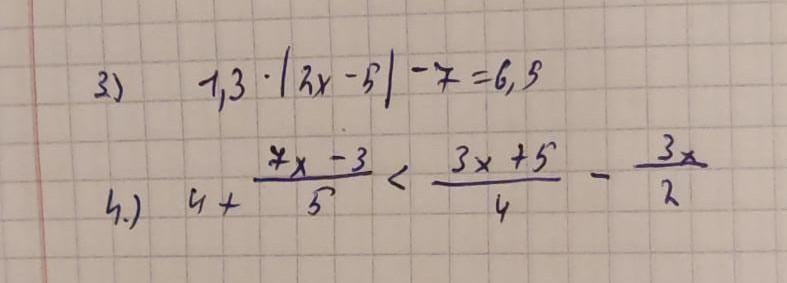 3) 1,3 · |2x - 5| - 7 = 6,5
4.) 4 + \frac{7x - 3}{5} < \frac{3x + 5}{4} - \frac{3x}{2}